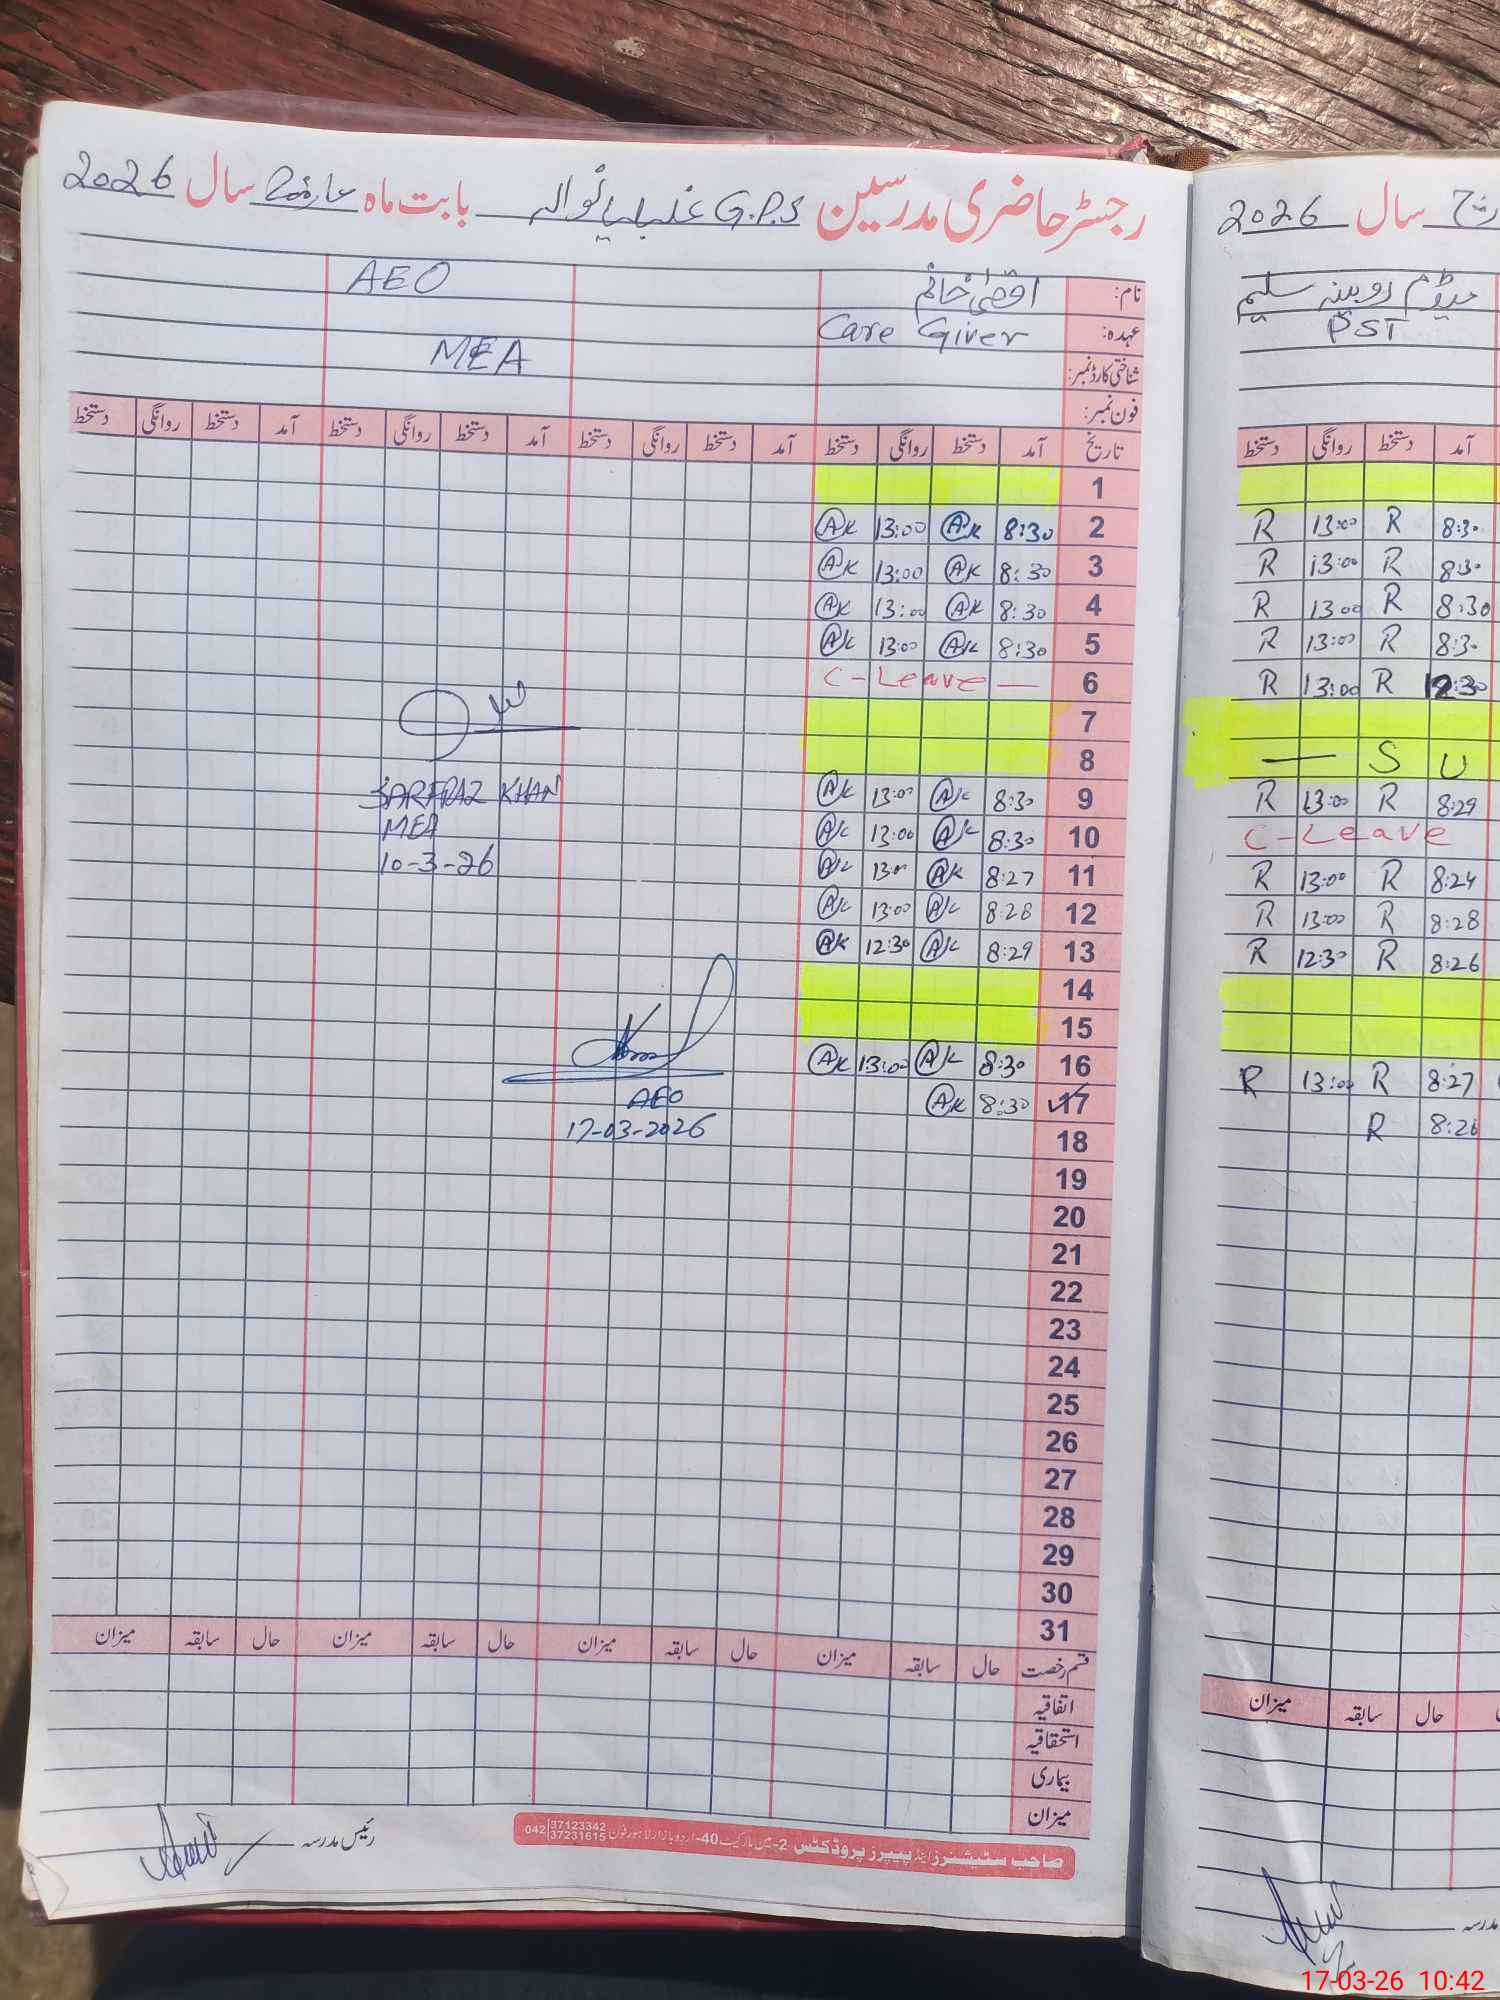 رجسٹر حاضری مدرسین G.P.S بابت ماہ مارچ سال 2026
نام: اقصیٰ خانم AEO
عہدہ: Care Giver
شناختی کارڈ نمبر: MEA
فون نمبر:
تاریخ آمد دستخط روانگی دستخط آمد دستخط روانگی دستخط آمد دستخط روانگی دستخط آمد دستخط روانگی دستخط
1
2 8:30 AK 13:00 AK
3 8:30 AK 13:00 AK
4 8:30 AK 13:00 AK
5 8:30 AK 13:00 AK
6 C-Leave —
7
8
9 8:30 AK 13:00 AK
10 8:30 AK 13:00 AK
11 8:27 AK 13:00 AK
12 8:28 AK 13:00 AK
13 8:29 AK 12:30 AK
14
15
16 8:30 AK 13:00 AK
17 8:30 AK
18
19
20
21
22
23
24
25
26
27
28
29
30
31
SARFRAZ KHAN
MEA
10-3-26
AEO
17-03-2026
قسم رخصت حال سابقہ میزان حال سابقہ میزان حال سابقہ میزان حال سابقہ میزان
اتفاقیہ
استحقاقیہ
بیماری
میزان
رئیس مدرسہ
صاحب سٹیشنرز اینڈ پیپرز پروڈکٹس 2-مین مارکیٹ 40-اردو بازار لاہور فون 042 37123342 37231615
سال 2026
میڈم روبینہ سلیم
PST
آمد دستخط روانگی دستخط
8:30 R 13:00 R
8:30 R 13:00 R
8:30 R 13:00 R
8:30 R 13:00 R
R 13:00 R
U S —
8:29 R 13:00 R
C-Leave
8:24 R 13:00 R
8:28 R 13:00 R
8:26 R 12:30 R
8:27 R 13:00 R
8:26 R
حال سابقہ میزان
مدرسہ
17-03-26 10:42